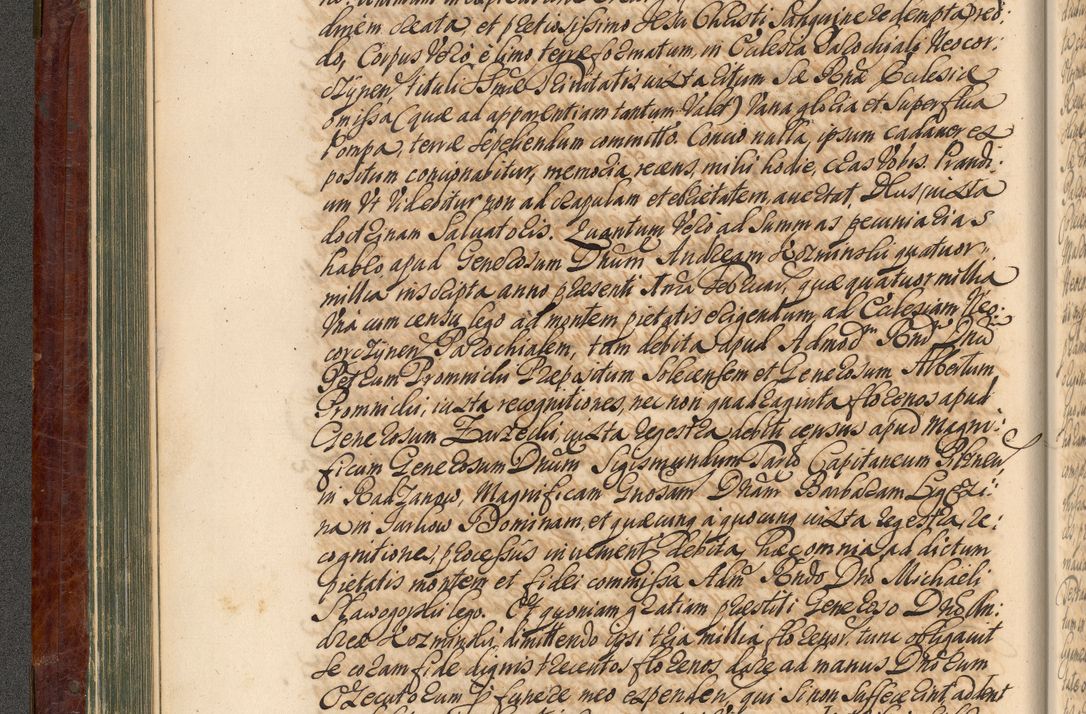 dinem creata, et pretiosissimo Jesu Christi Sanguine redempta red:
do, Corpus vero, e limo terræ formatum, in Ecclesia Parochiali Neocor:
czynen tituli Ssmæ Trinitatis iuxta ritum Sæ Rnæ Ecclesiæ
omissa (quæ ad apparentiam tantum valet) vana gloria et superflua
Pompa, terræ sepeliendum committo. Conuo nulla, ipsum cadauer ex
positum concionabitur, memoria recens, mihi hodie, cras vobis. Prandi:
um vt videbitur non ad crapulam et ebrietatem, auertat, Deus, iuxta
doctrinam Saluatoris. Quantum vero ad summas pecuniarias
habeo apud Generosum Dnum Andream Kozminski quatuor
millia inscripta anno præsenti Februar, quæ quatuor millia
vna cum censu lego ad montem pietatis erigendum, ad Ecclesiam Neo:
corczynen Parochialem, tam debita apud Admodm Rndm Dnum
Petrum Promnicki Præpositum Solecensem et Generosum Albertum
Promnicki, iuxta recognitiones, nec non quadraginta florenos apud
Generosum Zarzecki, iuxta regestra debiti census apud Magni:
ficum Generosum Dnum Sigismundum Tarło Capitaneum
in Radzanow, Magnificam Gnosam Dnam Barbaram
na in Tarłow Dominam, et quæcunq a quocunq iuxta regestra, re:
cognitiones, processus inuement debita, hæc omnia, ad dictum
pietatis montem et fidei commissa Adm Rndo Dno Michaeli
Rawogorski lego. Et quoniam gratiam præstiti Generoso Dno An:
dreæ Kozminski, dimittendo ipsi tria millia florenor. tunc obligauit
se coram fide dignis trecentos florenos dare ad manus Dnorum
Executorum p funere meo expenden, qui si non suffecerint, addent